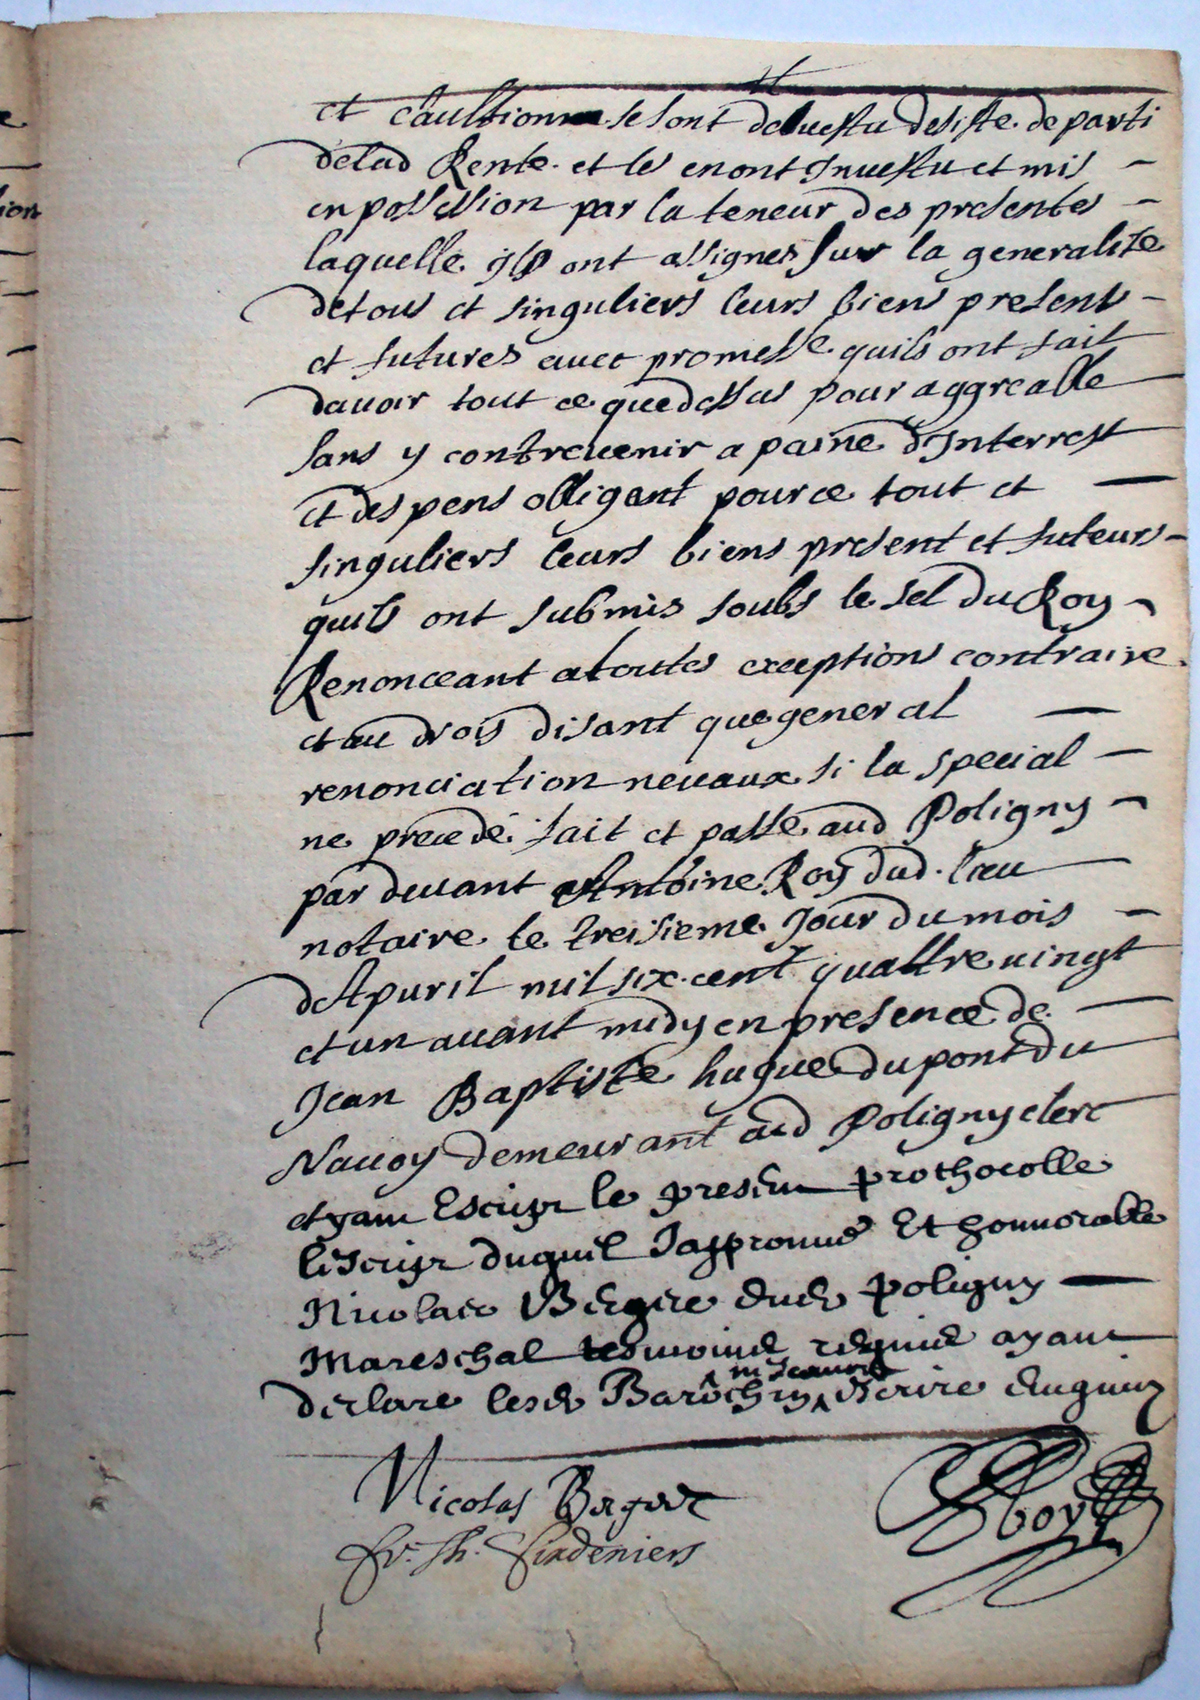 et caultionne se sont devestu desiste departi
delad Rente et les en ont Jnvestu et mis
en possession par la teneur des presentes
laquelle ils ont assignes sur la generalite
de tous et singuliers leurs biens present
et futures avec promesse quils ont fait
davoir tout ce que dessus pour aggreable
sans y contrevenir a paine dJnterrest
et despens obligant pour ce tout et
singuliers leurs biens present et futeurs
quils ont submis soubs le sel du Roy
Renonceant a toutes exceptions contraire
et au drois disant que general
renonciation nevaux si la special
ne precede fait et passe aud Poligny
par devant Antoine Roy dud. lieu
notaire le treisieme Jour du mois
dApvril mil six cent quattre vingt
et un avant midy en presence de
Jean Baptiste hugue dupont du
Navoy demeurant aud Poligny clerc
et yant Escript le present prothocolle
lescript duquel Japprouve Et honnorable
Nicolas Bergere dud poligny
Mareschal tesmoins requis ayant
declare lesd Barochin ny scavoir escrire
Nicolas Berger
fr. Th. Sixdeniers
Roy